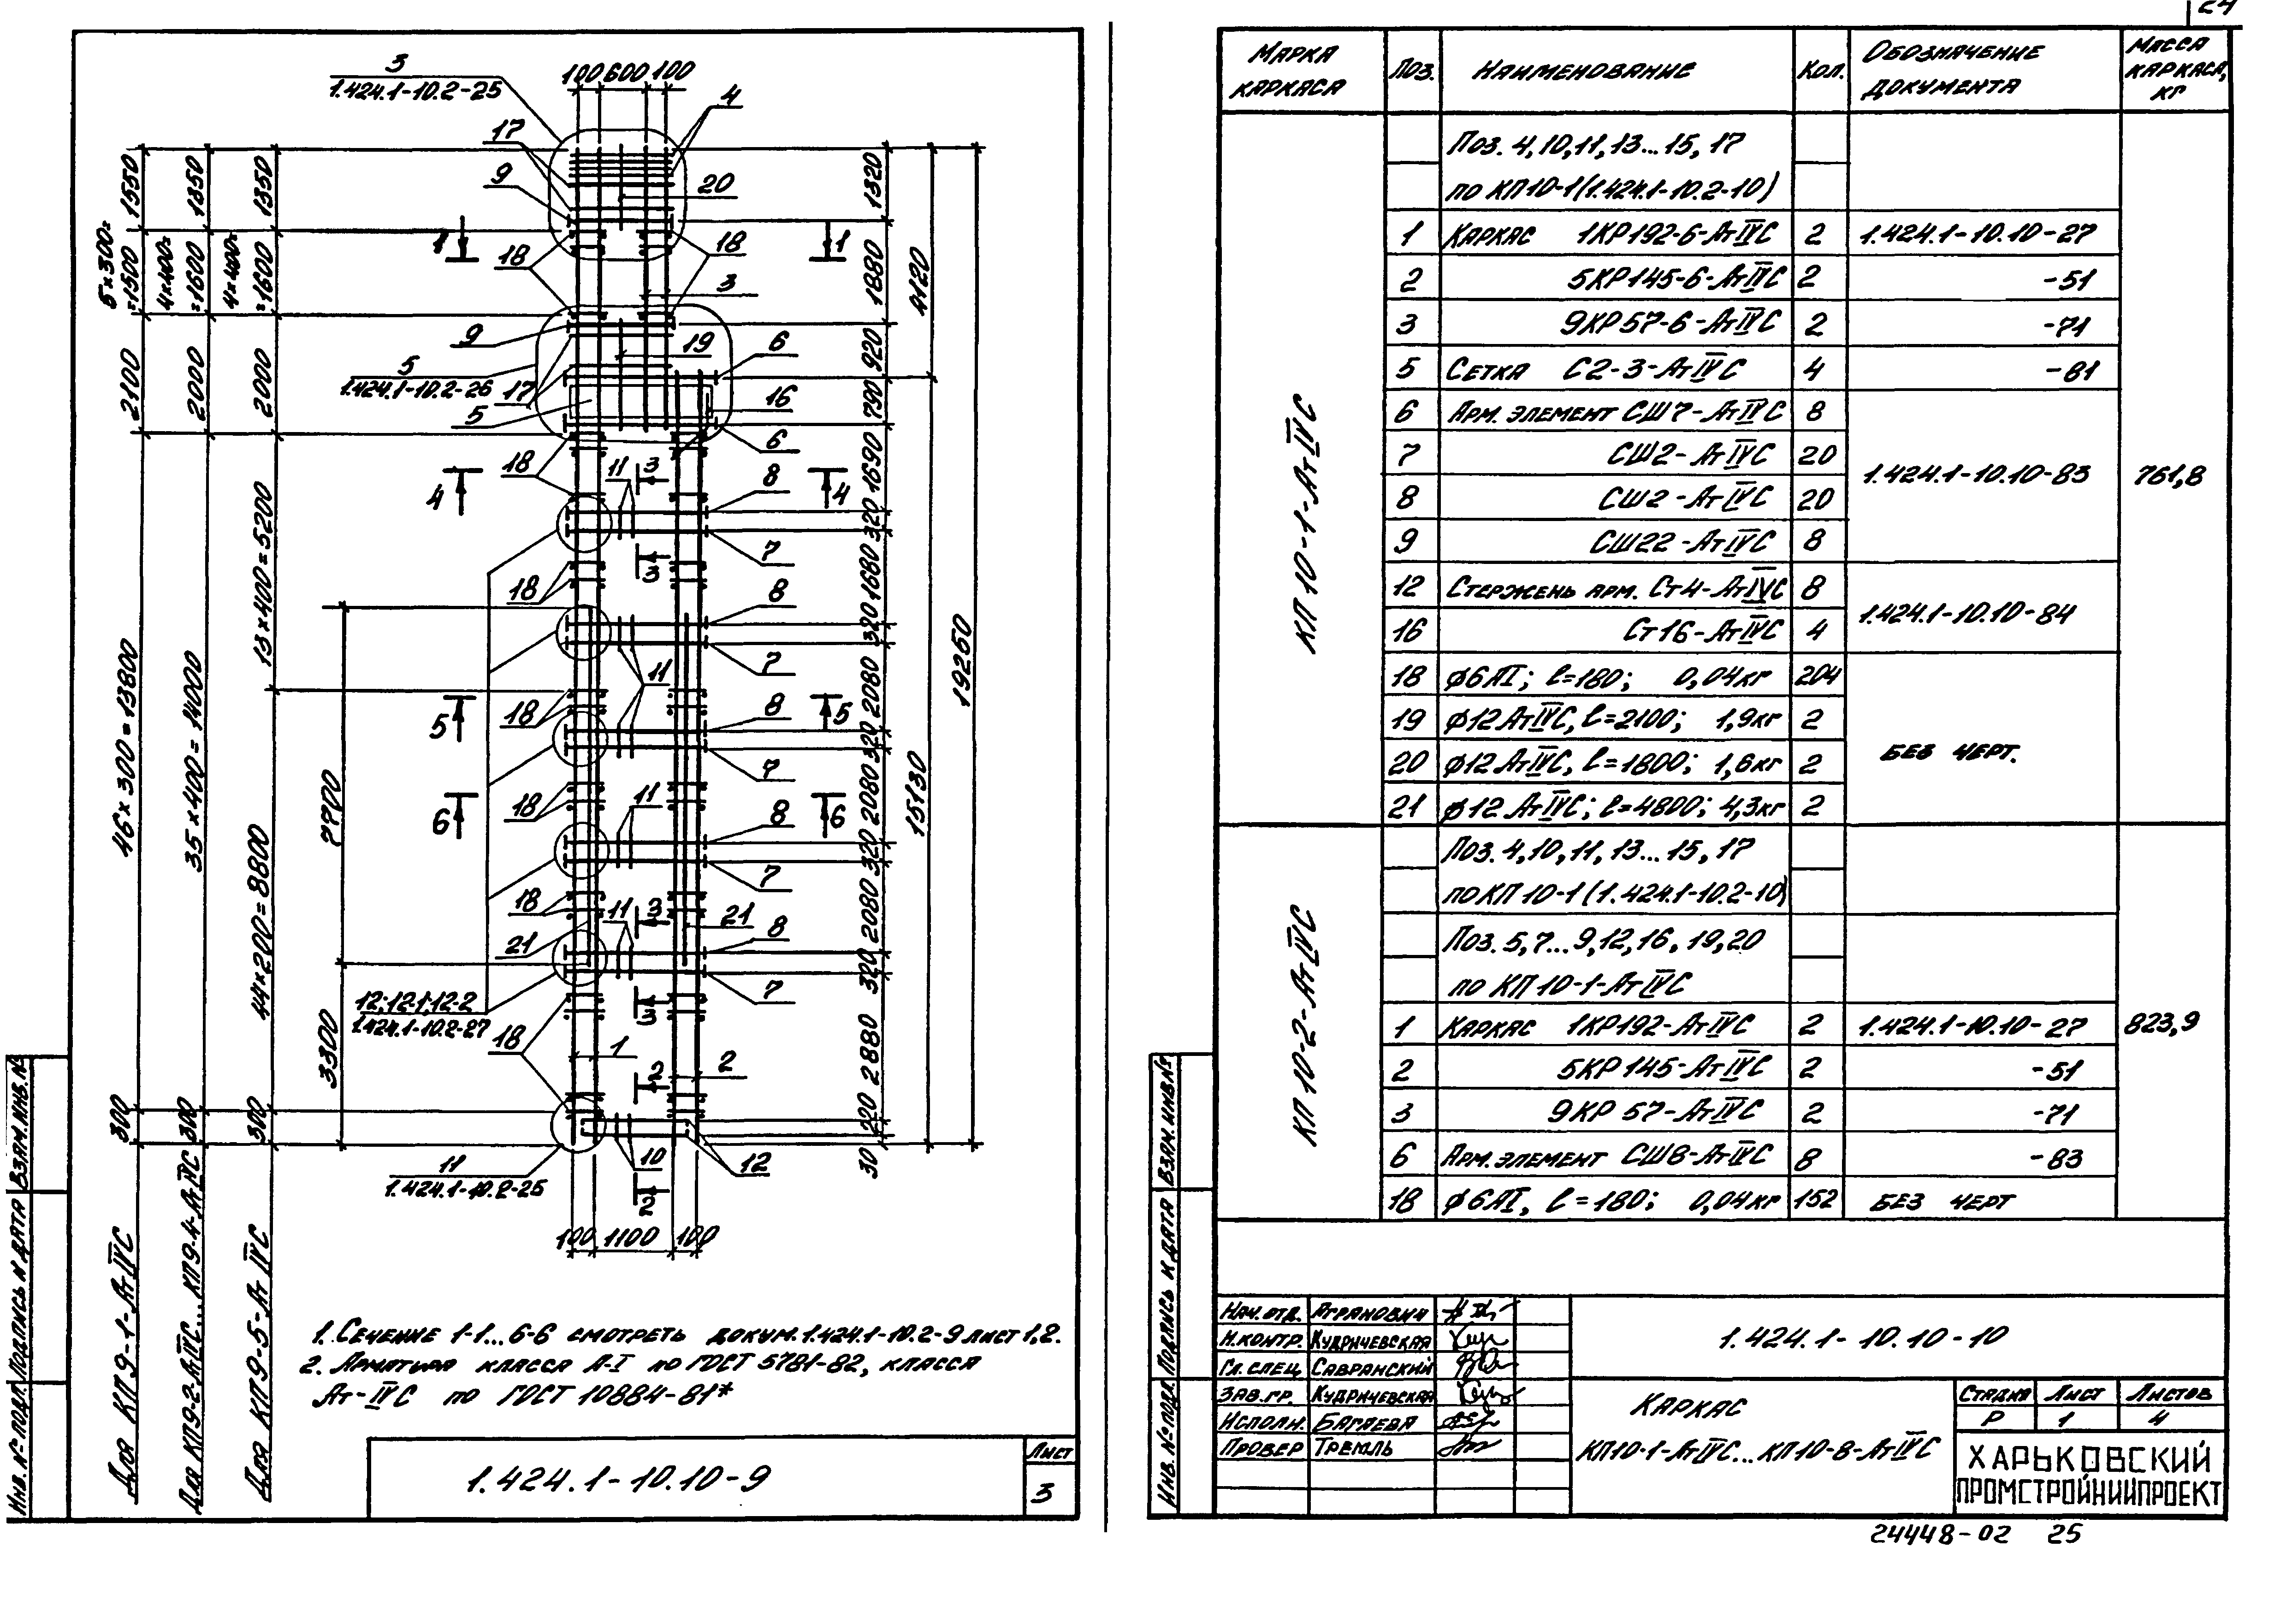 3
1.424.1-10.2-25
100 600 100
4
17
9
20
1
1
18
18
3
9
19
6
5
1.424.1-10.2-26
17
5
16
6
18
11
3
8
4
4
7
3
18
8
7
11
5
5
18
8
7
18
11
6
6
8
7
18
11
3
21
8
21
7
12; 12-1; 12-2
1.424.1-10.2-27
3
18
1
2
2
11
1.424.1-10.2-25
10
12
2
100 1100 100
1550
5×300=
=1500
2100
46×300=13800
300
Для КП9-1-АтIVС
1350
4×400=
=1600
2000
35×400=14000
300
Для КП9-2-АтIVС...КП9-4-АтIVС
1350
4×400=
=1600
2000
13×400=5200
44×200=8800
300
Для КП9-5-АтIVС
7700
3300
1320
1880
920
790
1690
320
1680
320
2080
320
2080
320
2080
320
2880
220
30
4120
15130
19250
1. Сечение 1-1...6-6 смотреть докум. 1.424.1-10.2-9 лист 1,2.
2. Арматура класса А-I по ГОСТ 5781-82, класса
Ат-IVС по ГОСТ 10884-81*
1.424.1-10.10-9
Лист
3
Инв. № подл. Подпись и дата Взам. инв. №
24
Марка каркаса Поз. Наименование Кол. Обозначение документа Масса каркаса, кг
КП10-1-АтIVС
Поз. 4,10,11,13...15, 17
по КП10-1 (1.424.1-10.2-10)
1 Каркас 1КР192-6-АтIVС 2 1.424.1-10.10-27
2 5КР145-6-АтIVС 2 -51
3 9КР57-6-АтIVС 2 -71
5 Сетка С2-3-АтIVС 4 -81
6 Арм. элемент СШ7-АтIVС 8
7 СШ2-АтIVС 20
1.424.1-10.10-83 761,8
8 СШ2-АтIVС 20
9 СШ22-АтIVС 8
12 Стержень арм. Ст4-АтIVС 8
1.424.1-10.10-84
16 Ст16-АтIVС 4
18 ф6АI; ℓ=180; 0,04кг 204
19 ф12АтIVС, ℓ=2100; 1,9кг 2
без черт.
20 ф12АтIVС, ℓ=1800; 1,6кг 2
21 ф12АтIVС; ℓ=4800; 4,3кг 2
КП10-2-АтIVС
Поз. 4,10,11,13...15,17
по КП10-1 (1.424.1-10.2-10)
Поз. 5,7...9,12,16, 19,20
по КП10-1-АтIVС
1 Каркас 1КР192-АтIVС 2 1.424.1-10.10-27 823,9
2 5КР145-АтIVС 2 -51
3 9КР57-АтIVС 2 -71
6 Арм. элемент СШ8-АтIVС 8 -83
18 ф6АI, ℓ=180; 0,04кг 152 без черт
Нач. отд. Агранович
Н.контр. Кудричевская
Гл. спец Савранский
Зав. гр. Кудричевская
Исполн. Багаева
Провер Тремль
1.424.1-10.10-10
Каркас
КП10-1-АтIVС...КП10-8-АтIVС
Стадия Лист Листов
Р 1 4
ХАРЬКОВСКИЙ
ПРОМСТРОЙНИИПРОЕКТ
Инв. № подл. Подпись и дата Взам. инв №
24448-02 25